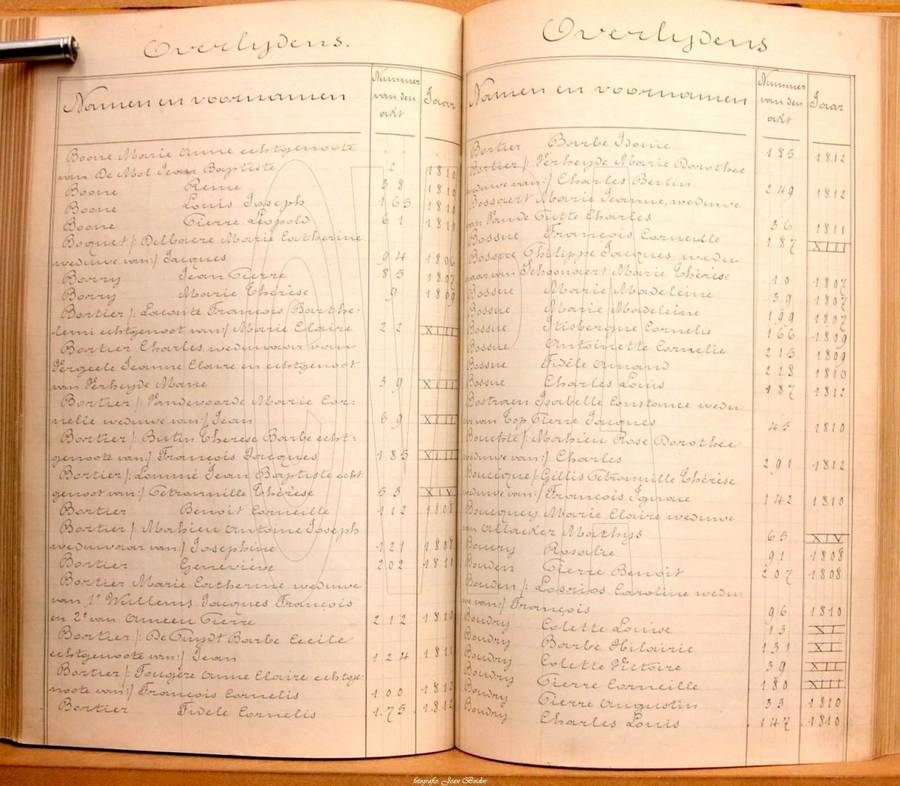 Overlydens.
Namen en voornamen
Nummer van den akt
Jaar
Boone Marie Anne echtgenoote
van De Mol Jean Baptiste 2 1810
Boone Reine 38 1810
Boone Louis Joseph 165 1811
Boone Pierre Léopold 61 1811
Boquet /: Delbaere Marie Catherine
weduwe van:/ Jacques 94 1806
Borry Jean Pierre 85 1807
Borry Marie Thérèse 9 1809
Bortier /: Laconte François Barthe-
lemi echtgenoot van:/ Marie Claire 22 XIII
Bortier Charles weduwaar van
Jeanne Claire en echtgenoot
van Verheyde Marie 39 XIII
Bortier /: Vandevoorde Marie Cor-
nelie weduwe van:/ Jean 69 XIII
Bortier /: Butin Therese Barbe echt-
genoote van:/ François Jacques 185 XIII
Bortier /: Lommé Jean Baptiste echt
genoot van:/ Petronille Thérèse 53 XIV
Bortier Benoit Corneille 112 1808
Bortier /: Mahieu Antoine Joseph
weduwaar van:/ Josephine 121 1808
Bortier Geneviève 202 1810
Bortier Marie Catherine weduwe
van 1° Willems Jacques François
en 2° van Ameeu Pierre 212 1810
Bortier /: De Cuydt Barbe Cecile
echtgenoote van:/ Jean 124 1811
Bortier /: Fougère Anne Claire echtge-
noote van:/ François Cornelis 100 1812
Bortier Fidele Cornelis 175 1812
Overlydens
Namen en voornamen
Nummer van den akt
Jaar
Bortier Barbe Isonie 185 1812
Bortier /: Verheyde Marie Dorothee
weduwe van:/ Charles Bertin 249 1812
Bossaert Marie Jeanne, weduwe
van Vande Putte Charles 36 1811
Bossue François Corneille 187 XIII
Bossue Philippe Jacques, wedu
aar van Schoonaert Marie Thérèse 10 1807
Bossue Marie Madeleine 39 1807
Bossue Marie Madeleine 199 1807
Bossue Itisbergue Cornelie 166 1809
Bossue Antoinette Cornelie 213 1809
Bossue Fidèle Amand 218 1810
Bossue Charles Louis 187 1812
Bostraen Isabelle Constance wedu
we van Top Pierre Jacques 45 1810
Bouché /: Mahieu Rose Dorothee
weduwe van:/ Charles 291 1812
Boucique /: Gillis Petronille Thérèse
weduwe van:/ François Ignace 142 1810
Bouciquey Marie Claire weduwe
Mathys 65 XIV
Bouery Rosalie 91 1808
Bouden Pierre Benoit 207 1808
Bouden /: Losrios Caroline wedu
we van:/ François 96 1810
Boudry Colette Louise 13 XI
Boudry Barbe Hilairie 131 XI
Boudry Colette Victoire 39 XII
Boudry Pierre Corneille 180 XIII
Boudry Pierre Augustin 33 1810
Boudry Charles Louis 147 1810
fotografie: Joan Baidse